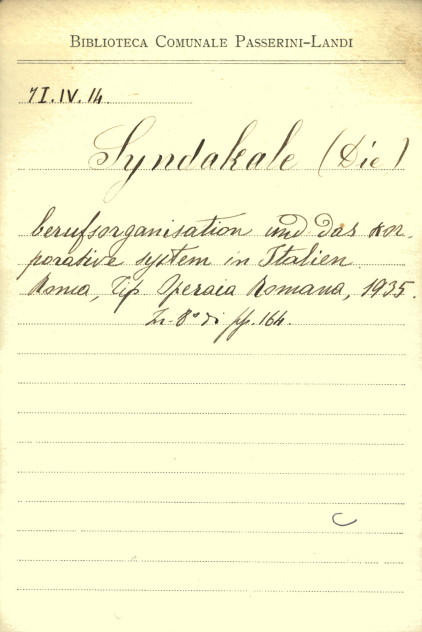 BIBLIOTECA COMUNALE PASSERINI-LANDI
7I.IV.14.
Syndakale (Die)
berufsorganisation und das kor-
porative system in Italien
Roma, Tip Operaia Romana, 1935.
In-8° di pp. 164.
C